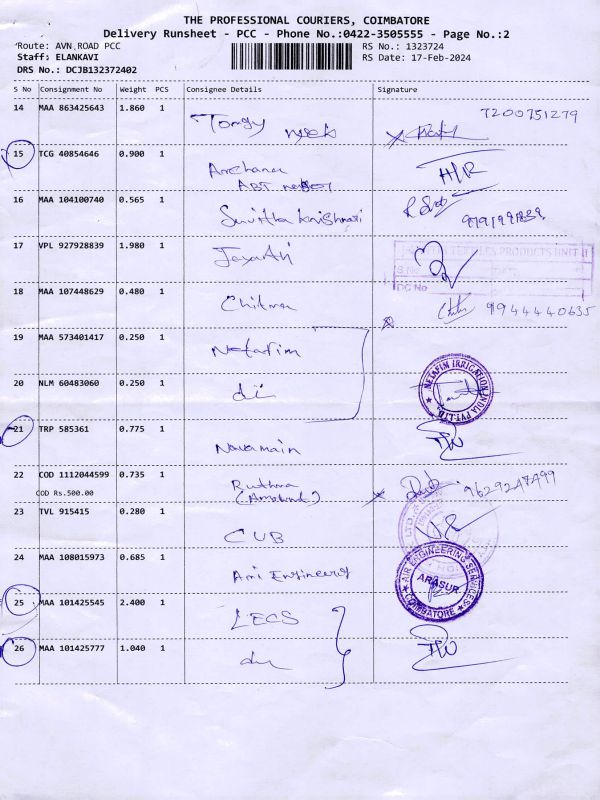 THE PROFESSIONAL COURIERS, COIMBATORE
Delivery Runsheet - PCC - Phone No.:0422-3505555 - Page No.:2
Route: AVN ROAD PCC RS No.: 1323724
Staff: ELANKAVI RS Date: 17-Feb-2024
DRS No.: DCJB132372402
S No Consignment No Weight PCS Consignee Details Signature
14 MAA 863425643 1.860 1 7200751279
15 TCG 40854646 0.900 1 Archana H/R
ABT
16 MAA 104100740 0.565 1
17 VPL 927928839 1.980 1 Jayanthi
TEXTILES PRODUCTS UNIT II
DC No
18 MAA 107448629 0.480 1 Chitra 9944440635
19 MAA 573401417 0.250 1 Netafim
20 NLM 60483060 0.250 1 di NETAFIM IRRIGATION INDIA PVT.LTD.
21 TRP 585361 0.775 1 Navamain
22 COD 1112044599 0.735 1 Ruthra 9629247499
COD Rs.500.00
23 TVL 915415 0.280 1 CUB
24 MAA 108015973 0.685 1 Ami Engineering AIR ENGINEERING SERVICES ARASUR COIMBATORE
25 MAA 101425545 2.400 1 LECS
26 MAA 101425777 1.040 1 du